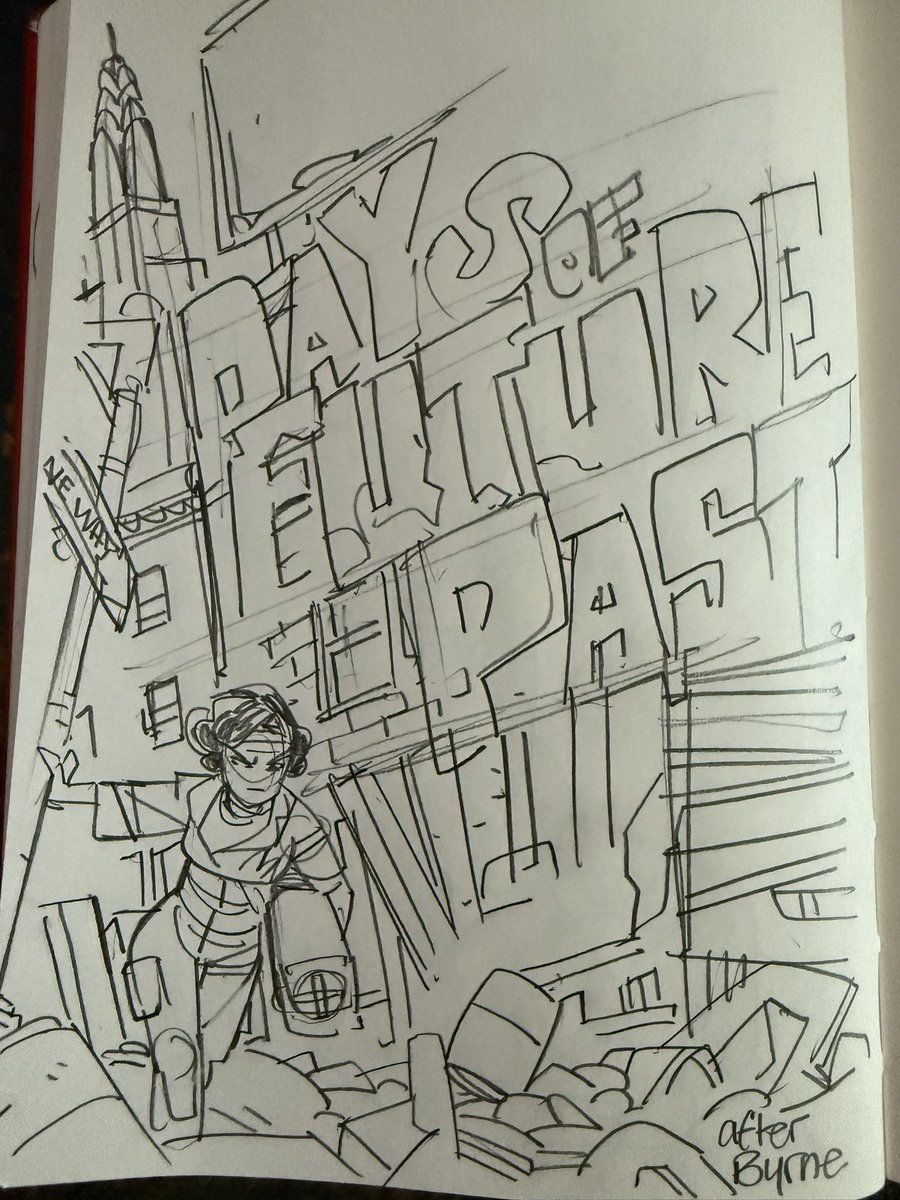 DAYS OF
FUTURE
PAST
after
Byrne